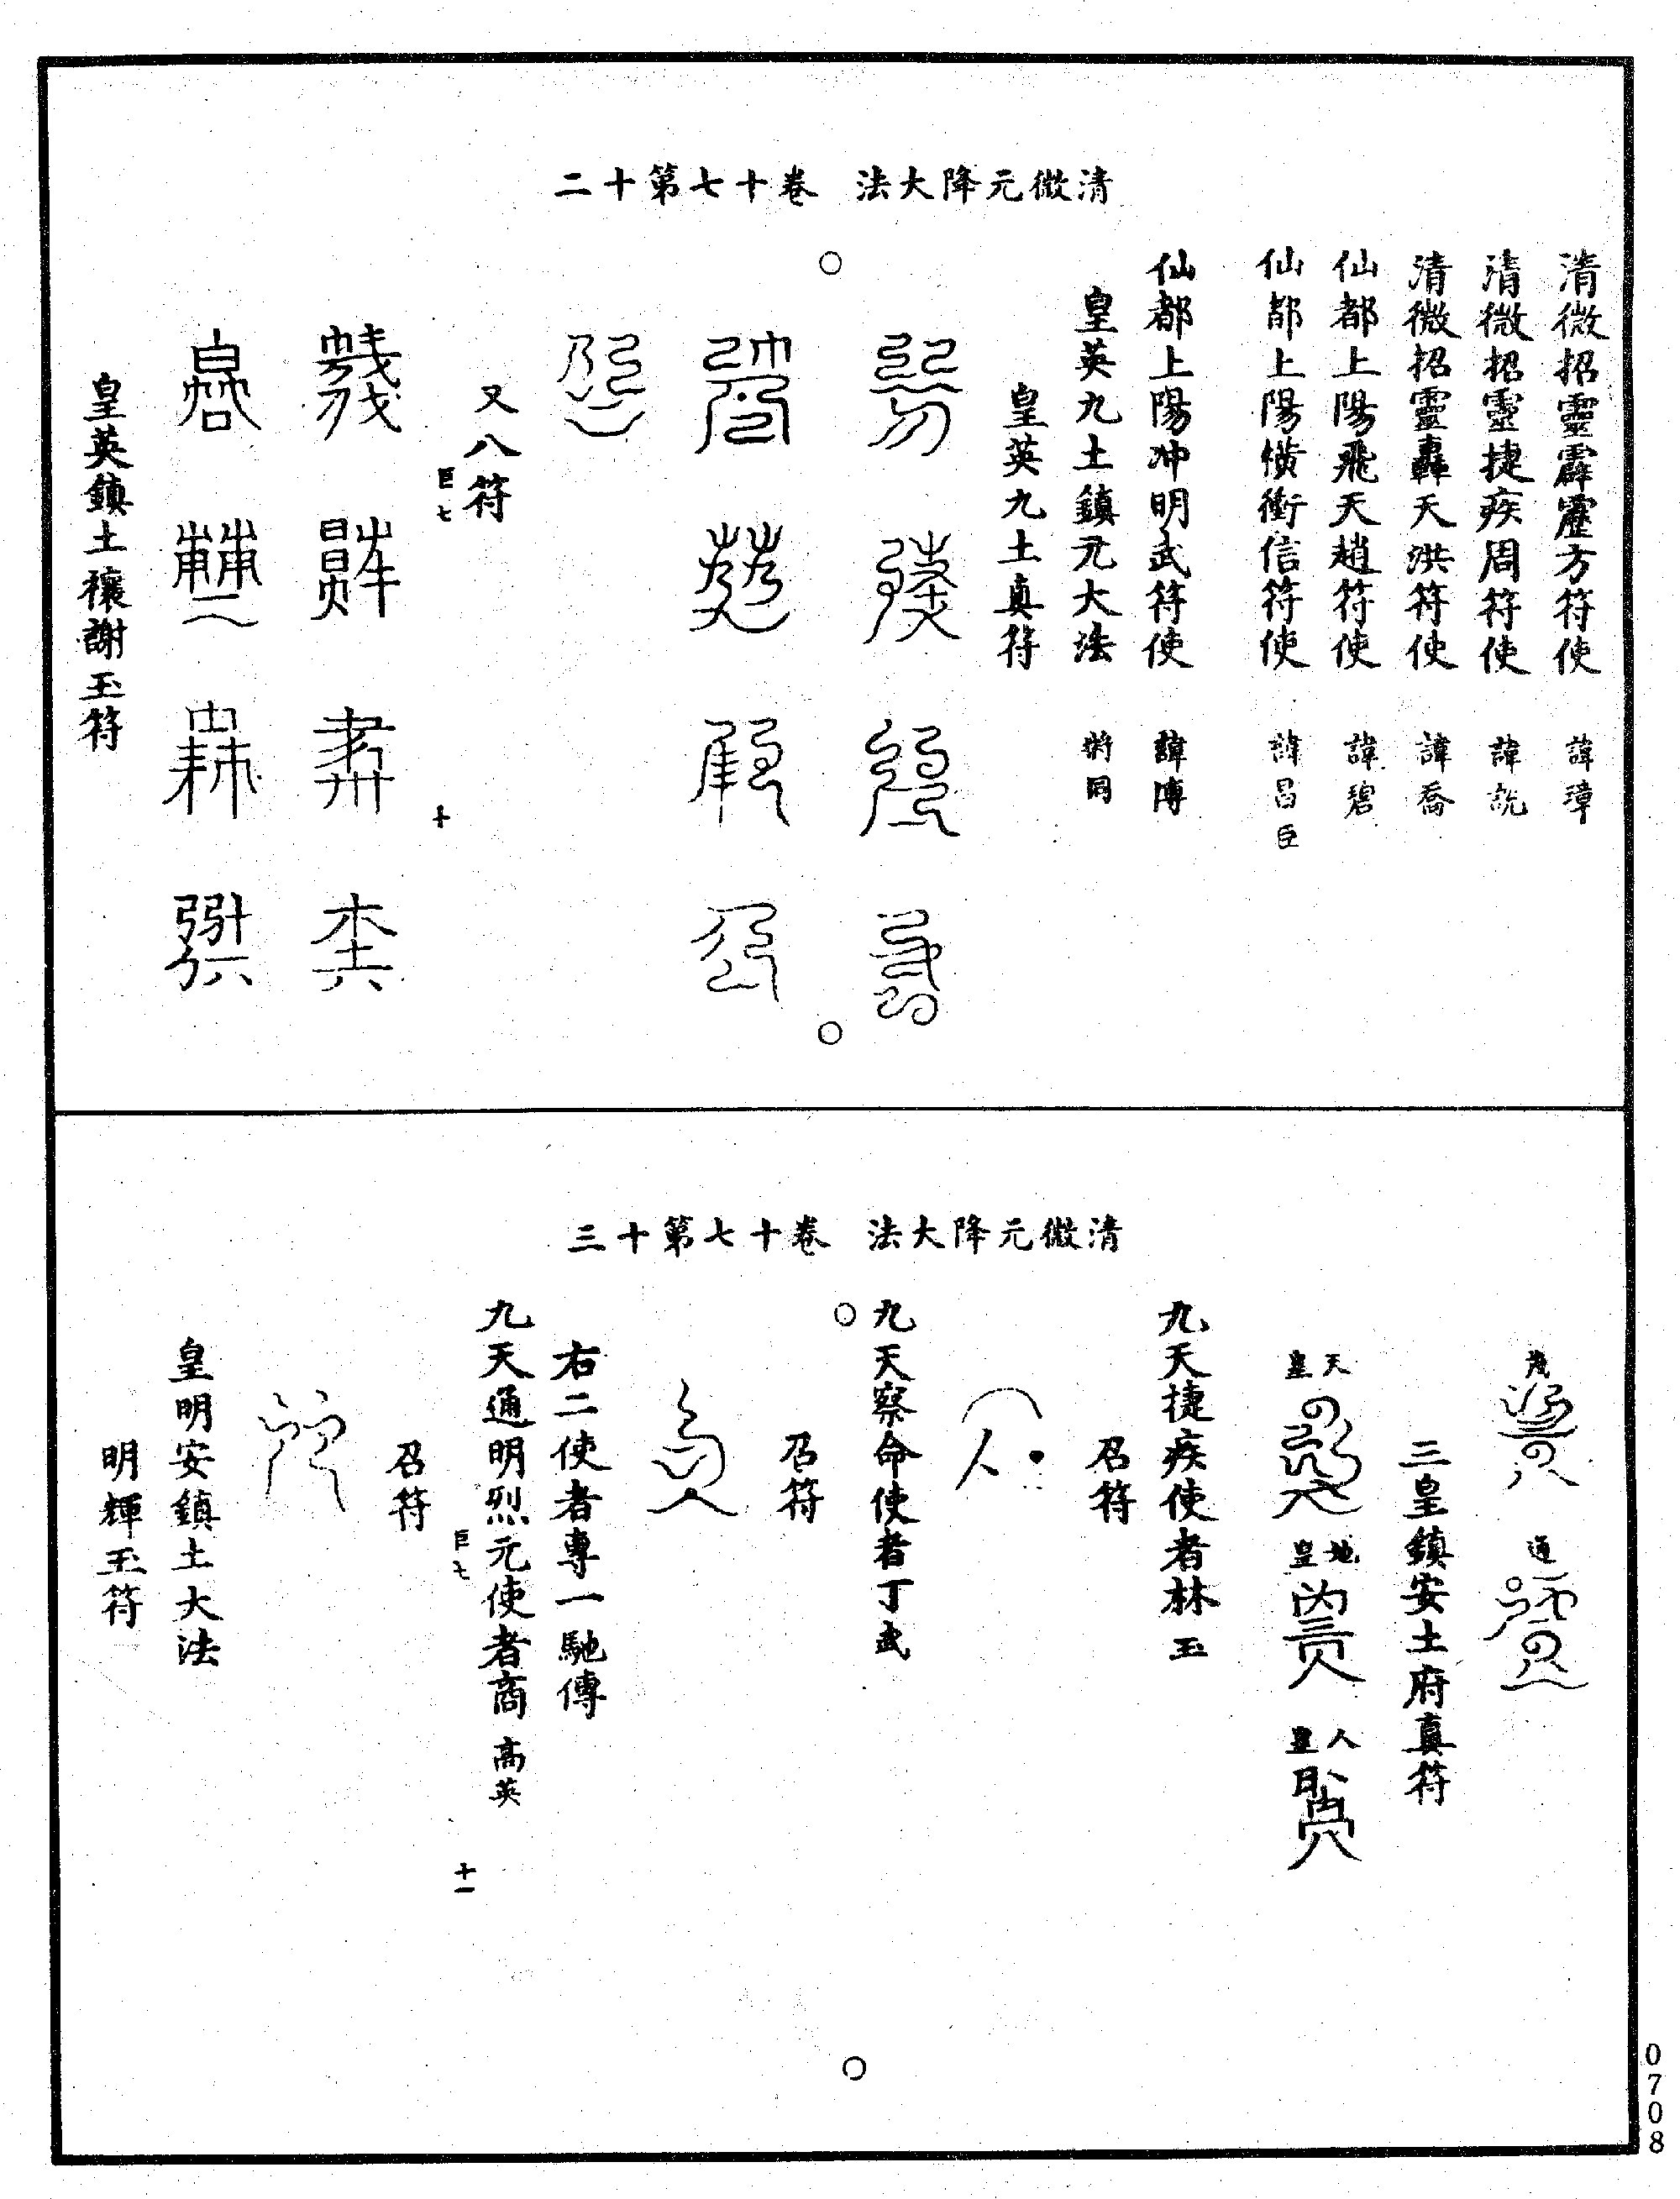 清微元降大法　卷十七第十二
清微招靈霹靂方符使　諱璋
清微招靈捷疾周符使　諱説
清微招靈轟天洪符使　諱喬
仙都上陽飛天趙符使　諱碧
仙都上陽橫衝信符使　諱昌臣
仙都上陽冲明武符使　諱溥
皇英九土鎮元大法　將同
皇英九土真符
又八符
巨七　十
皇英鎮土禳謝玉符
清微元降大法　卷十七第十三
茂　通
三皇鎮安土府真符
天皇　地皇　人皇
九天捷疾使者林玉
召符
九天察命使者丁武
召符
右二使者專一馳傳
九天通明烈元使者商高英
巨七　十一
召符
皇明安鎮土大法
明輝玉符
0708